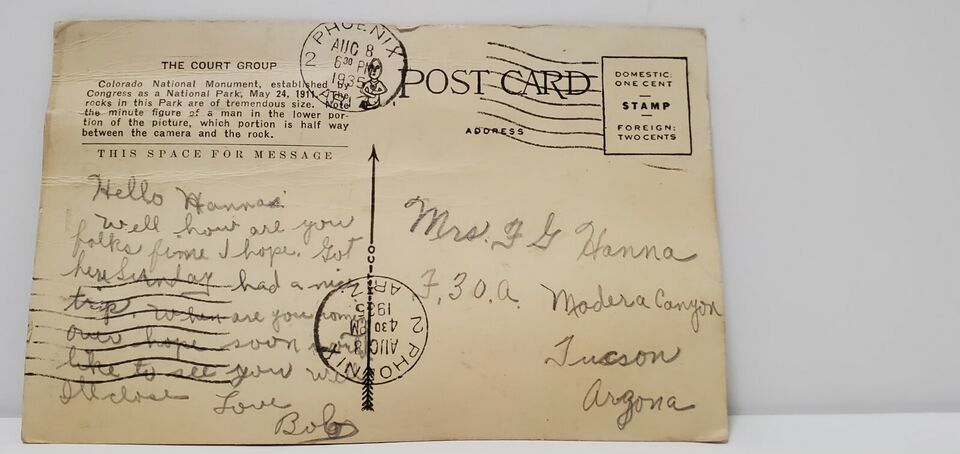 THE COURT GROUP
Colorado National Monument, established by
Congress as a National Park, May 24, 1911. The
rocks in this Park are of tremendous size. Note
the minute figure of a man in the lower por-
tion of the picture, which portion is half way
between the camera and the rock.
THIS SPACE FOR MESSAGE
Hello Hannas
Well how are you
folks fine I hope. Got
here Sunday had a nice
trip. When are you coming
over hope soon
like to see you we
Ill close
Love
Bob
PHOENIX
2
AUG 8
6 30 PM
1935
ARIZ.
POST CARD
ADDRESS
DOMESTIC:
ONE CENT
STAMP
FOREIGN:
TWO CENTS
Mrs. F G Hanna
F, 30.A. Madera Canyon
Tucson
Arizona
2 PHOENIX
AUG 8
4 30 PM
1935
ARIZ.